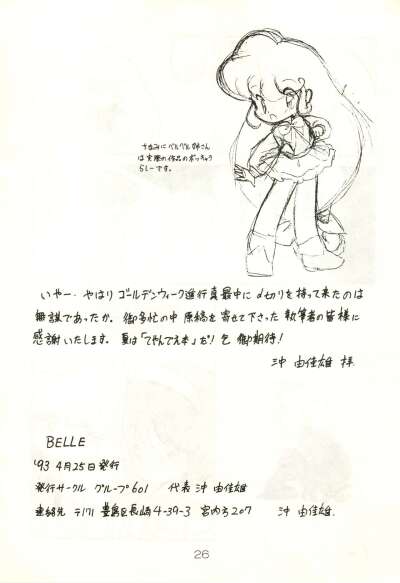 ちなみにベルベル姉さん
は実際の作品のボッキャラ
らしーです。
いやー・やはり ゴールデンウィーク進行真最中に〆切りを持って来たのは
無謀であったか。御多忙の中 原稿を寄せて下さった 執筆者の皆様に
感謝いたします。夏は「てやんでえ本」だ! 乞 御期待!
沖 由佳雄 拝
BELLE
'93 4月25日 発行
発行サークル グループ601 代表 沖 由佳雄
連絡先 〒171 豊島区長崎4-39-3 宮内方207 沖 由佳雄.
26